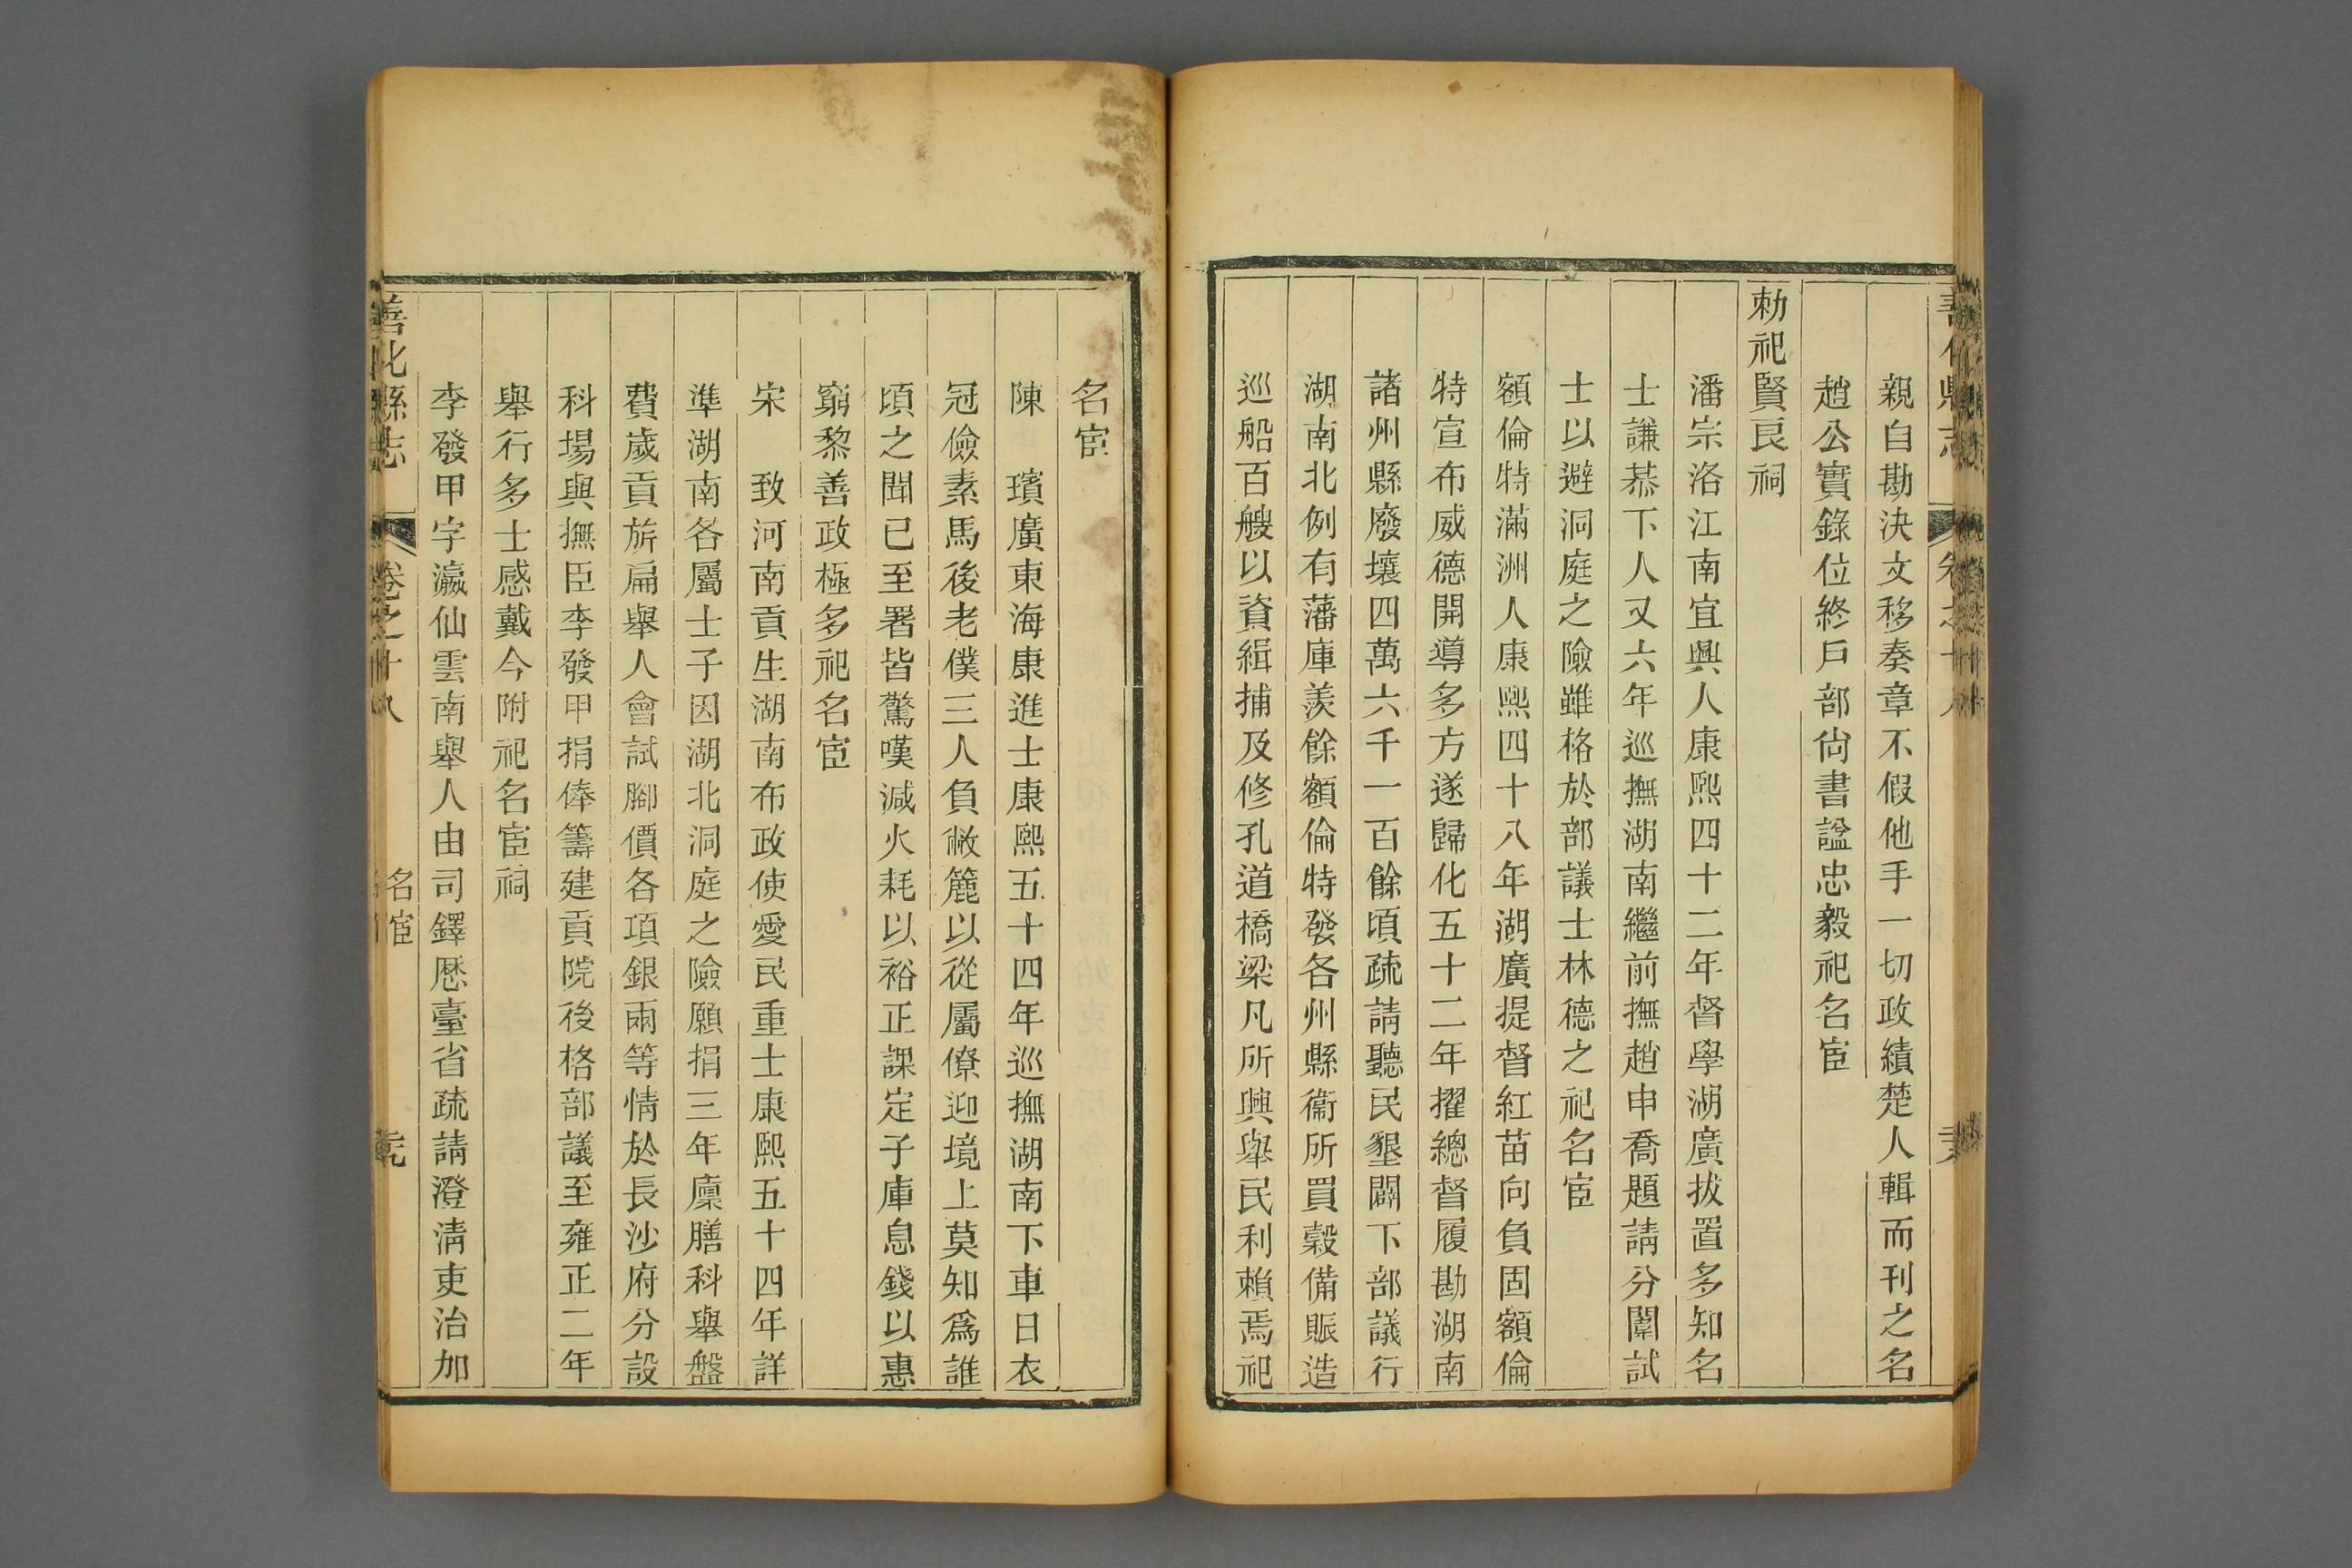 親自勘決文移奏章不假他手一切政績楚人輯而刊之名
趙公實錄位終戶部尙書諡忠毅祀名宦
勅祀賢良祠
潘宗洛江南宜興人康熙四十二年督學湖廣拔置多知名
士謙恭下人又六年巡撫湖南繼前撫趙申喬題請分闈試
士以避洞庭之險雖格於部議士林德之祀名宦
額倫特滿洲人康熙四十八年湖廣提督紅苗向負固額倫
特宣布威德開導多方遂歸化五十二年擢總督履勘湖南
諸州縣廢壤四萬六千一百餘頃疏請聽民墾闢下部議行
湖南北例有藩庫羨餘額倫特發各州縣衞所買穀備賑造
巡船百艘以資緝捕及修孔道橋梁凡所興舉民利賴焉祀
名宦
陳　璸廣東海康進士康熙五十四年巡撫湖南下車日衣
冠儉素馬後老僕三人負敝簏以從屬僚迎境上莫知爲誰
頃之聞已至署皆驚嘆減火耗以裕正課定子庫息錢以惠
窮黎善政極多祀名宦
宋　致河南貢生湖南布政使愛民重士康熙五十四年詳
準湖南各屬士子因湖北洞庭之險願捐三年廩膳科舉盤
費歲貢旂扁舉人會試腳價各項銀兩等情於長沙府分設
科場與撫臣李發甲捐俸籌建貢院後格部議至雍正二年
舉行多士感戴今附祀名宦祠
李發甲字瀛仙雲南舉人由司鐸歷臺省疏請澄淸吏治加
善化縣志　卷之十八　名宦